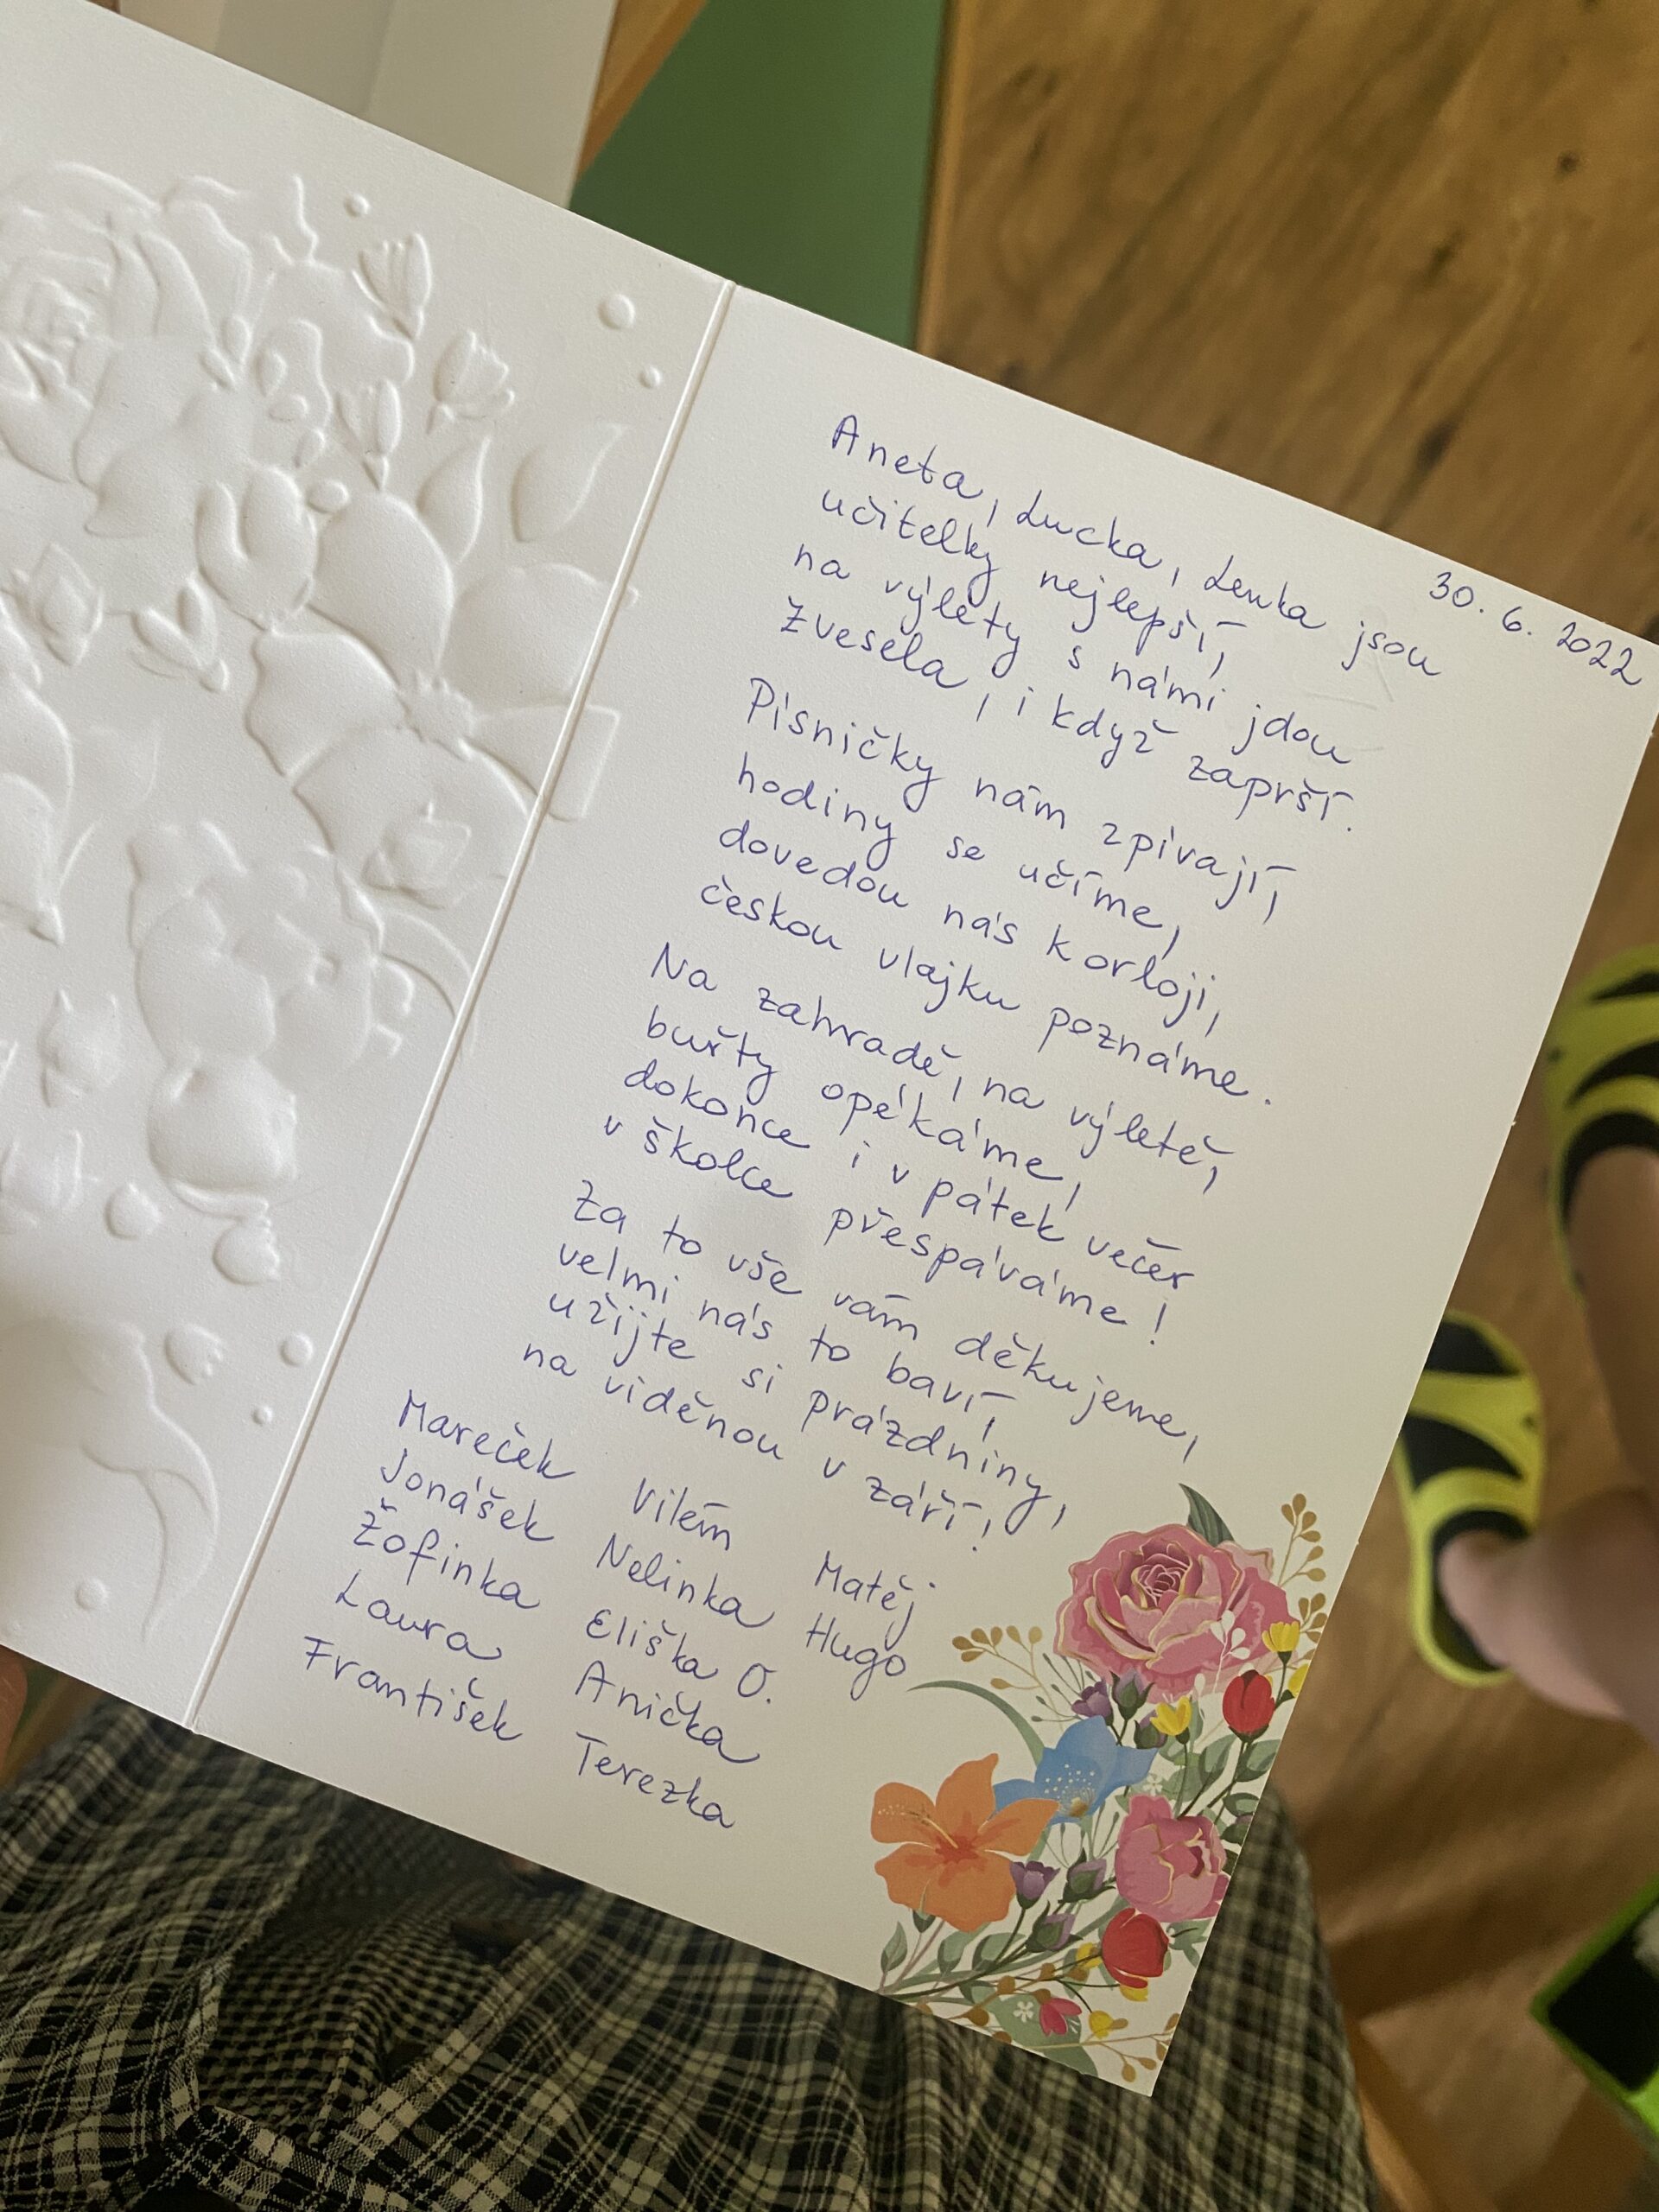 30. 6. 2022
Aneta, Lucka, Lenka jsou
učitelky nejlepší,
na výlety s námi jdou
zvesela, i když zaprší.
Písničky nám zpívají,
hodiny se učíme,
dovedou nás k orloji,
českou vlajku poznáme.
Na zahradě, na výletě,
buřty opékáme,
dokonce i v pátek večer
v školce přespáváme!
Za to vše vám děkujeme,
velmi nás to baví,
užijte si prázdniny,
na viděnou v září!
Mareček Vilém Matěj
Jonášek Nelinka Hugo
Žofinka Eliška O.
Laura Anička
František Terezka